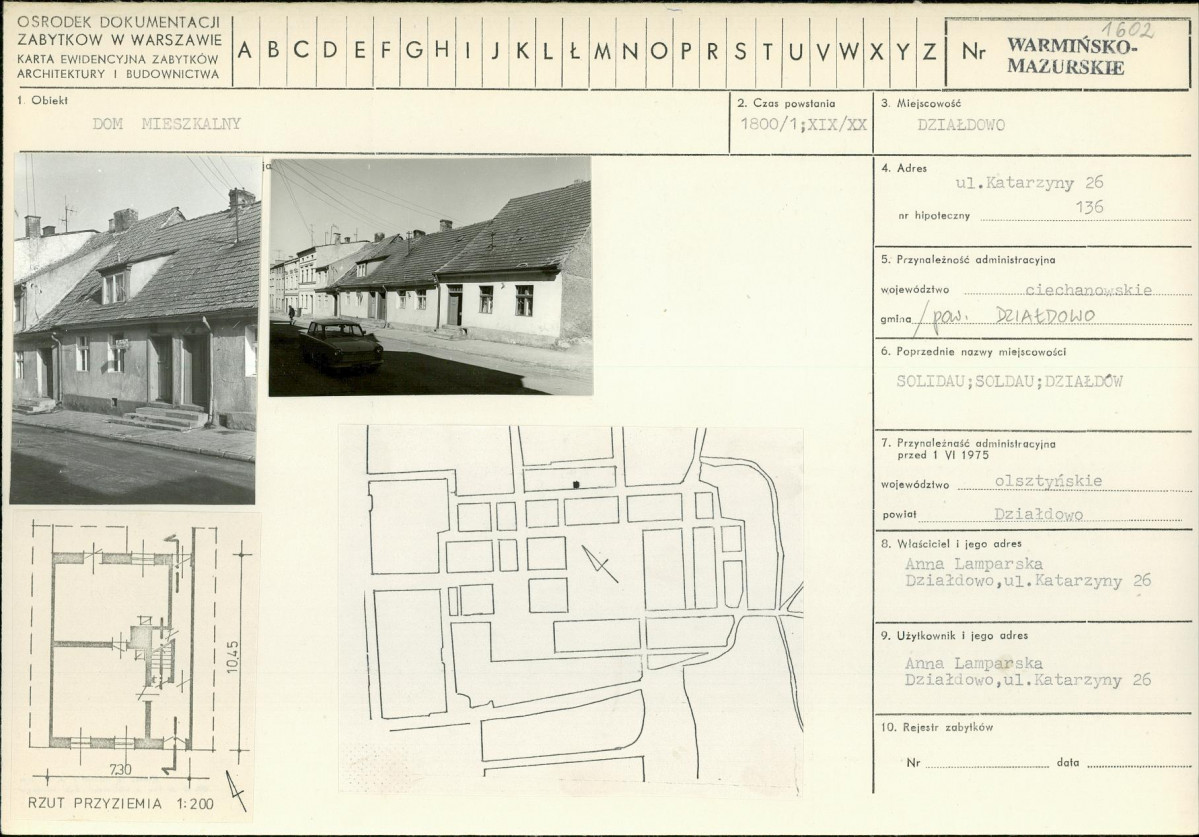 OSRODEK DOKUMENTACJI
ZABYTKÓW W WARSZAWIE
KARTA EWIDENCYJNA ZABYTKÓW
ARCHITEKTURY I BUDOWNICTWA
A B C D E F G H I J K L Ł M N O P R S T U V W X Y Z
Nr
1602
WARMIŃSKO-
MAZURSKIE
1. Obiekt
DOM MIESZKALNY
2. Czas powstania
1800/1;XIX/XX
3. Miejscowość
DZIAŁDOWO
4. Adres
ul.Katarzyny 26
nr hipoteczny 136
5. Przynależność administracyjna
województwo ciechanowskie
gmina/pow. DZIAŁDOWO
6. Poprzednie nazwy miejscowości
SOLIDAU;SOLDAU;DZIAŁDÓW
7. Przynależność administracyjna
przed 1 VI 1975
województwo olsztyńskie
powiat Działdowo
8. Właściciel i jego adres
Anna Lamparska
Działdowo,ul.Katarzyny 26
9. Użytkownik i jego adres
Anna Lamparska
Działdowo,ul.Katarzyny 26
10. Rejestr zabytków
Nr data
10,45
7.30
RZUT PRZYZIEMIA 1:200